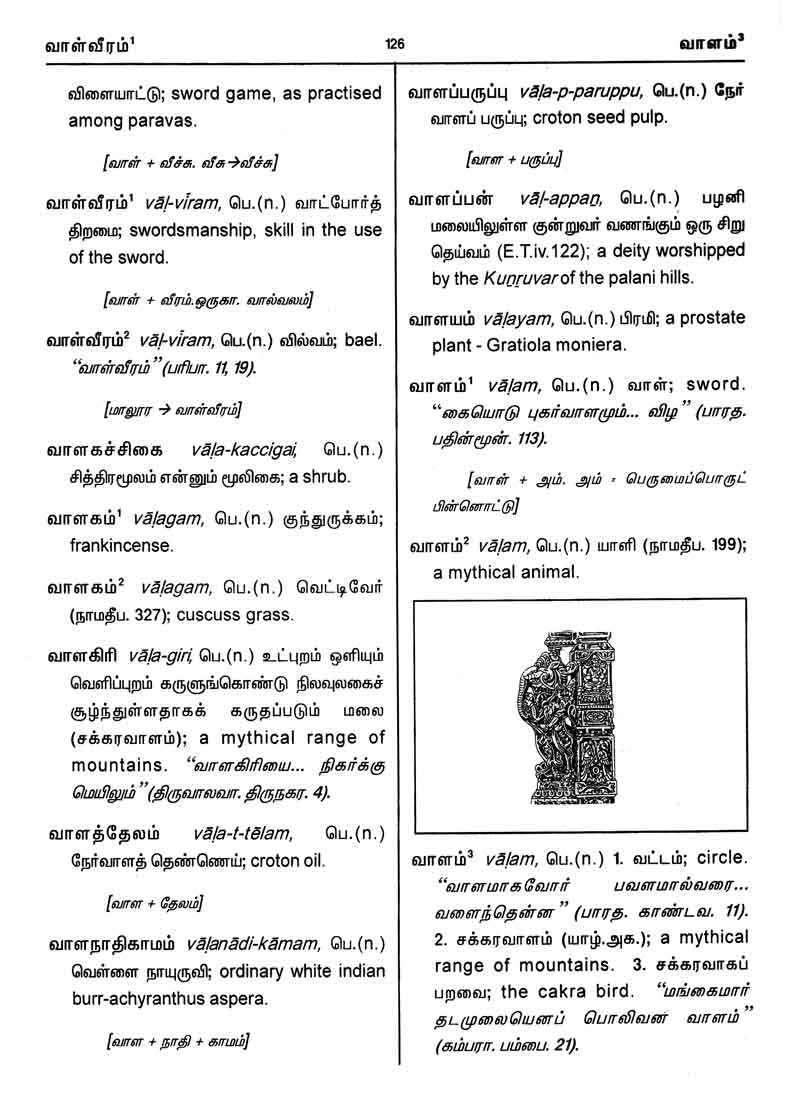 வாள்வீரம்¹
126
வாளம்³
விளையாட்டு; sword game, as practised
among paravas.
[வாள் + வீச்சு. வீசு→வீச்சு]
வாள்வீரம்¹ vāḷ-vīram, பெ.(n.) வாட்போர்த்
திறமை; swordsmanship, skill in the use
of the sword.
[வாள் + வீரம்.ஒருகா. வால்வலம்]
வாள்வீரம்² vāḷ-vīram, பெ.(n.) வில்வம்; bael.
“வாள்வீரம்” (பரிபா. 11, 19).
[மாலூர → வாள்வீரம்]
வாளகச்சிகை vāḷa-kaccigai, பெ.(n.)
சித்திரமூலம் என்னும் மூலிகை; a shrub.
வாளகம்¹ vāḷagam, பெ.(n.) குந்துருக்கம்;
frankincense.
வாளகம்² vāḷagam, பெ.(n.) வெட்டிவேர்
(நாமதீப. 327); cuscuss grass.
வாளகிரி vāḷa-giri, பெ.(n.) உட்புறம் ஒளியும்
வெளிப்புறம் கருளுங்கொண்டு நிலவுலகைச்
சூழ்ந்துள்ளதாகக் கருதப்படும் மலை
(சக்கரவாளம்); a mythical range of
mountains. “வாளகிரியை... நிகர்க்கு
மெயிலும்” (திருவாலவா. திருநகர. 4).
வாளத்தேலம் vāḷa-t-tēlam, பெ.(n.)
நேர்வாளத் தெண்ணெய்; croton oil.
[வாள + தேலம்]
வாளநாதிகாமம் vāḷanādi-kāmam, பெ.(n.)
வெள்ளை நாயுருவி; ordinary white indian
burr-achyranthus aspera.
[வாள + நாதி + காமம்]
வாளப்பருப்பு vāḷa-p-paruppu, பெ.(n.) நேர்
வாளப் பருப்பு; croton seed pulp.
[வாள + பருப்பு]
வாளப்பன் vāḷ-appaṉ, பெ.(n.) பழனி
மலையிலுள்ள குன்றுவர் வணங்கும் ஒரு சிறு
தெய்வம் (E.T.iv.122); a deity worshipped
by the Kuṉṟuvar of the palani hills.
வாளயம் vāḷayam, பெ.(n.) பிரமி; a prostate
plant - Gratiola moniera.
வாளம்¹ vāḷam, பெ.(n.) வாள்; sword.
“கையொடு புகர்வாளமும்... விழ” (பாரத.
பதின்மூன். 113).
[வாள் + அம். அம் = பெருமைப்பொருட்
பின்னொட்டு]
வாளம்² vāḷam, பெ.(n.) யாளி (நாமதீப. 199);
a mythical animal.
வாளம்³ vāḷam, பெ.(n.) 1. வட்டம்; circle.
“வாளமாகவோர் பவளமால்வரை...
வளைந்தென்ன” (பாரத. காண்டவ. 11).
2. சக்கரவாளம் (யாழ்.அக.); a mythical
range of mountains. 3. சக்கரவாகப்
பறவை; the cakra bird. “மங்கைமார்
தடமுலையெனப் பொலிவன வாளம்”
(கம்பரா. பம்பை. 21).